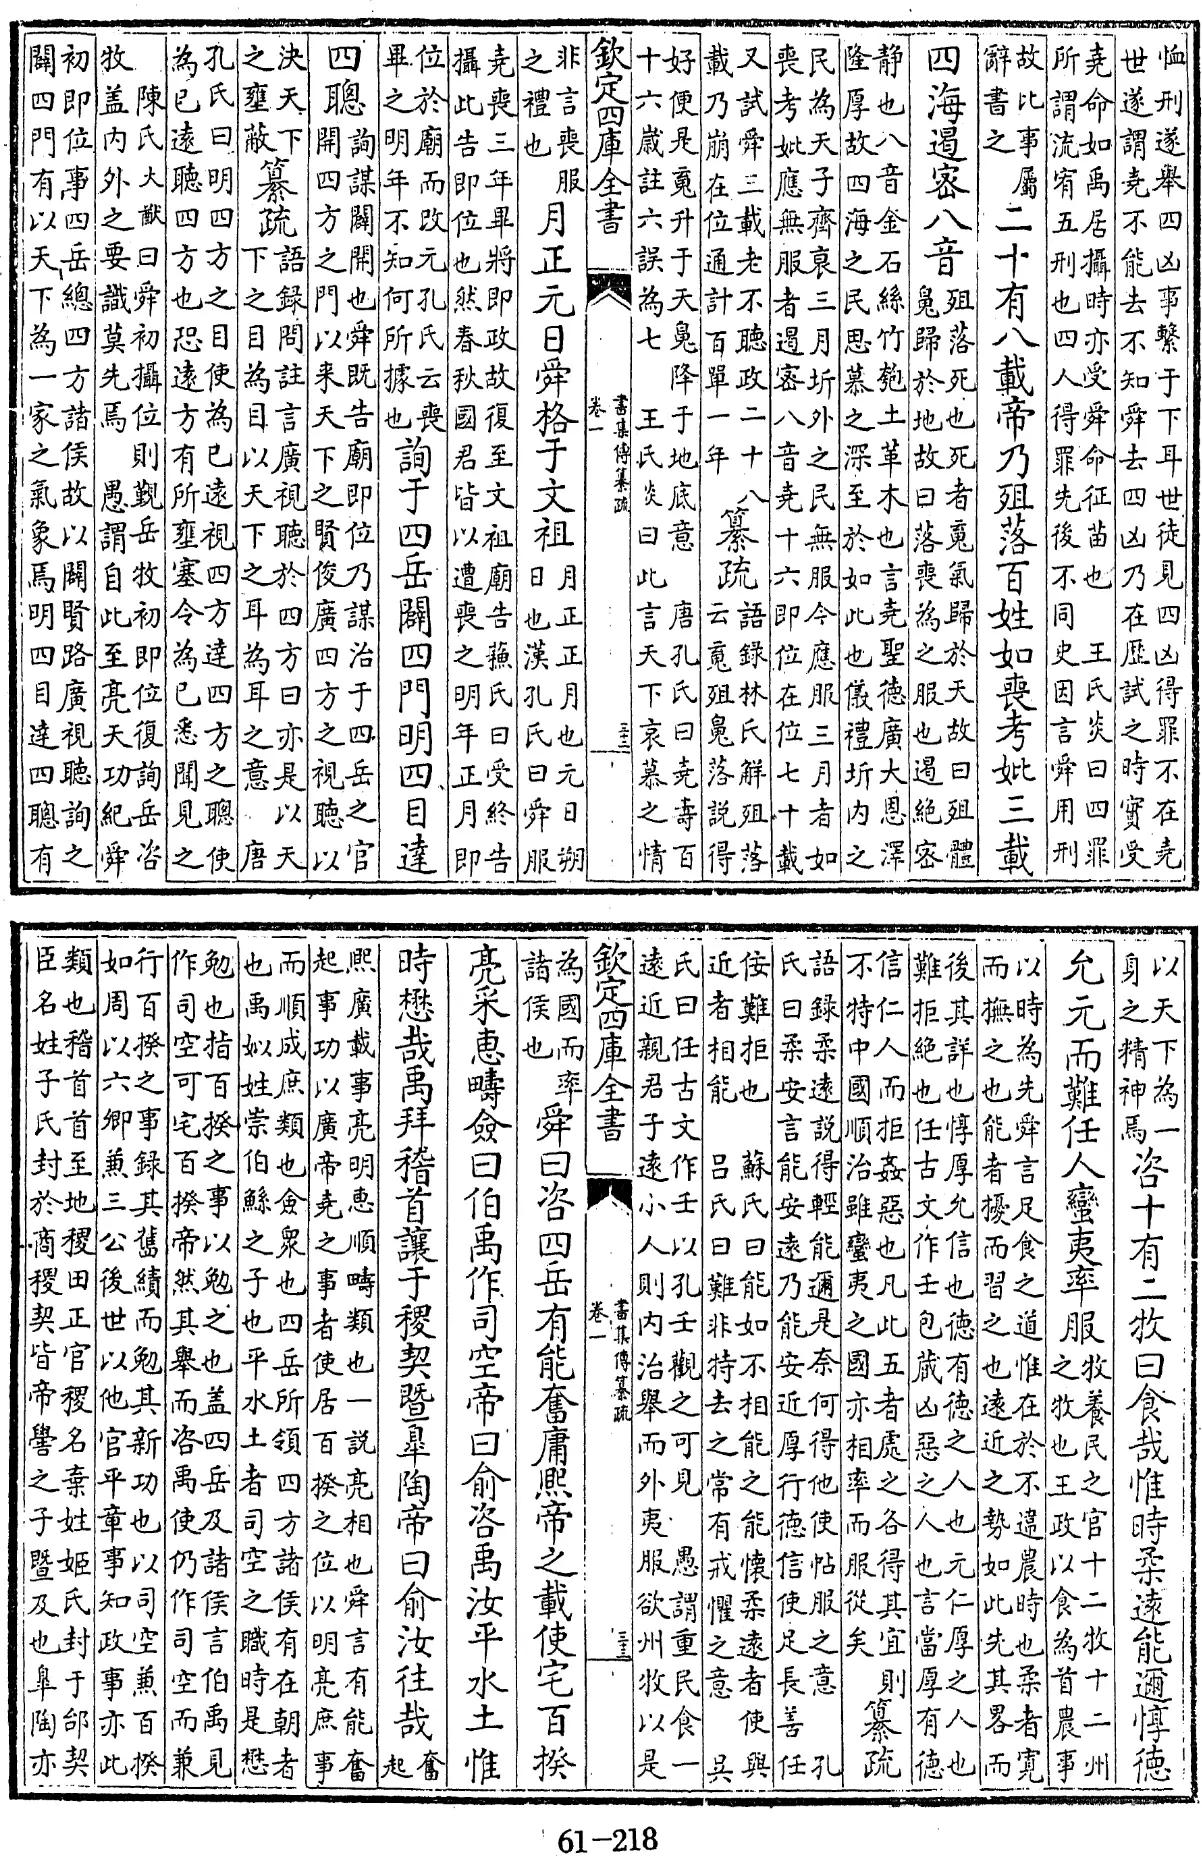 恤刑遂舉四凶事繫于下耳世徒見四凶得罪不在堯
世遂謂堯不能去不知舜去四凶乃在歴試之時實受
堯命如禹居攝時亦受舜命征苗也　王氏炎曰四罪
所謂流宥五刑也四人得罪先後不同史因言舜用刑
故比事屬
辭書之
二十有八載帝乃殂落百姓如喪考妣三載
四海遏宻八音
殂落死也死者䰟氣歸於天故曰殂體
魄歸於地故曰落喪為之服也遏絶宻
静也八音金石絲竹匏土革木也言堯聖德廣大恩澤
隆厚故四海之民思慕之深至於如此也儀禮圻内之
民為天子齊衰三月圻外之民無服今應服三月者如
喪考妣應無服者遏宻八音堯十六即位在位七十載
又試舜三載老不聽政二十八
載乃崩在位通計百單一年
纂疏
語録林氏解殂落
云䰟殂魄落説得
好便是䰟升于天魄降于地底意　唐孔氏曰堯壽百
十六嵗註六誤為七　王氏炎曰此言天下哀慕之情
欽定四庫全書
書集傳纂疏
卷一
三三
非言喪服
之禮也
月正元日舜格于文祖
月正正月也元日朔
日也漢孔氏曰舜服
堯喪三年畢將即政故復至文祖廟告蘇氏曰受終告
攝此告即位也然春秋國君皆以遭喪之明年正月即
位於廟而改元孔氏云喪
畢之明年不知何所據也
詢于四岳闢四門明四目達
四聰
詢謀闢開也舜既告廟即位乃謀治于四岳之官
開四方之門以来天下之賢俊廣四方之視聽以
決天下
之壅蔽
纂疏
語録問註言廣視聽於四方曰亦是以天
下之目為目以天下之耳為耳之意　唐
孔氏曰明四方之目使為已逺視四方達四方之聰使
為已逺聽四方也恐逺方有所壅塞令為已悉聞見之
陳氏大猷曰舜初攝位則覲岳牧初即位復詢岳咨
牧盖内外之要識莫先焉　愚謂自此至亮天功紀舜
初即位事四岳總四方諸侯故以闢賢路廣視聽詢之
闢四門有以天下為一家之氣象焉明四目達四聰有
以天下為一
身之精神焉
咨十有二牧曰食哉惟時柔逺能邇惇德
允元而難任人蠻夷率服
牧養民之官十二牧十二州
之牧也王政以食為首農事
以時為先舜言足食之道惟在於不違農時也柔者寛
而撫之也能者擾而習之也逺近之勢如此先其畧而
後其詳也惇厚允信也德有德之人也元仁厚之人也
難拒絶也任古文作壬包蔵凶惡之人也言當厚有德
信仁人而拒姦惡也凡此五者處之各得其宜則
不特中國順治雖蠻夷之國亦相率而服從矣
纂疏
語録柔逺説得輕能邇是奈何得他使帖服之意　孔
氏曰柔安言能安逺乃能安近厚行德信使足長善任
佞難拒也　蘇氏曰能如不相能之能懷柔逺者使與
近者相能　吕氏曰難非特去之常有戒懼之意　吴
氏曰任古文作壬以孔壬觀之可見　愚謂重民食一
逺近親君子逺小人則内治舉而外夷服欲州牧以是
欽定四庫全書
書集傳纂疏
卷一
三三
為國而率
諸侯也
舜曰咨四岳有能奮庸熙帝之載使宅百揆
亮采惠疇僉曰伯禹作司空帝曰俞咨禹汝平水土惟
時懋哉禹拜稽首讓于稷契暨臯陶帝曰俞汝往哉
奮
起
熙廣載事亮明惠順疇類也一説亮相也舜言有能奮
起事功以廣帝堯之事者使居百揆之位以明亮庶事
而順成庶類也僉衆也四岳所領四方諸侯有在朝者
也禹姒姓崇伯鯀之子也平水土者司空之職時是懋
勉也指百揆之事以勉之也盖四岳及諸侯言伯禹見
作司空可宅百揆帝然其舉而咨禹使仍作司空而兼
行百揆之事録其舊績而勉其新功也以司空兼百揆
如周以六卿兼三公後世以他官平章事知政事亦此
類也稽首首至地稷田正官稷名棄姓姬氏封于邰契
臣名姓子氏封於商稷契皆帝嚳之子暨及也臯陶亦
61-218